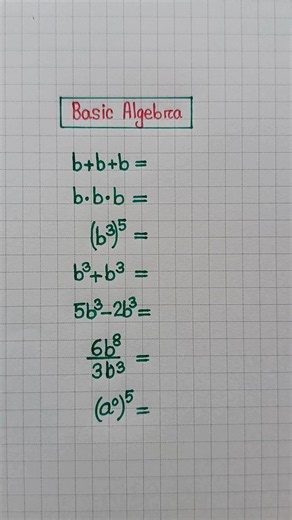 Basic Algebra
b+b+b =
b•b•b =
(b³)⁵ =
b³+b³ =
5b³-2b³=
6b⁸
3b³ =
(a⁰)⁵ =